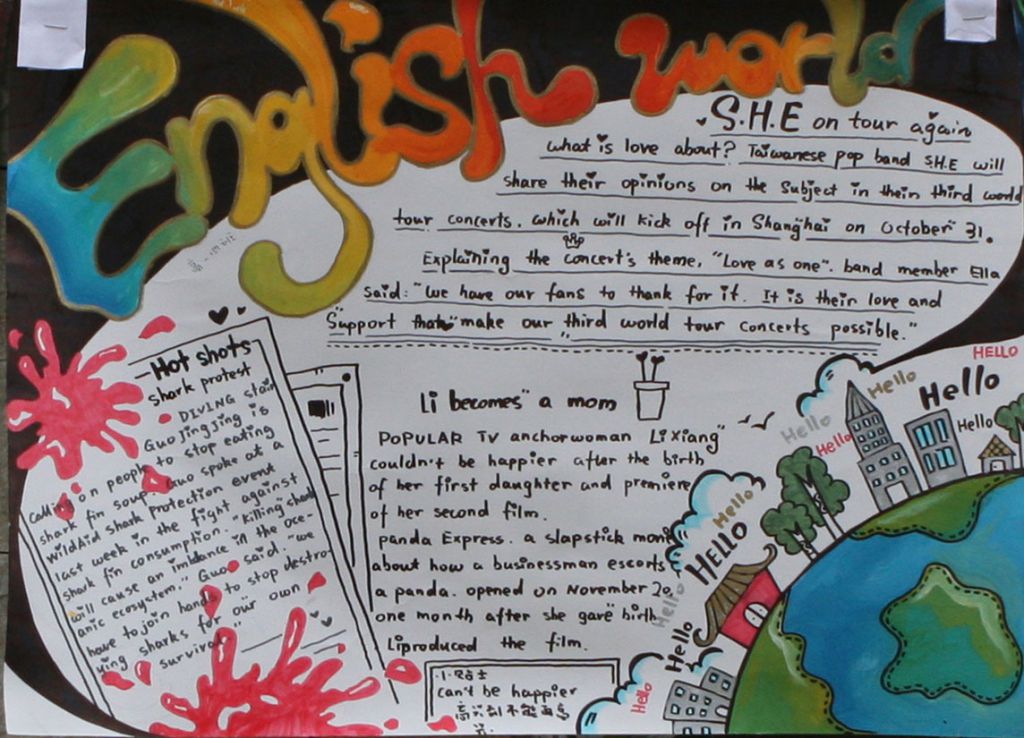 English world
S.H.E on tour again
what is love about? Taiwanese pop band S.H.E will
share their opinions on the subject in thein third world
tour concerts. which will kick off in Shanghai on October 31.
Explaining the concert's theme, "Love as one". band member Ella
said: "We have our fans to thank for it. It is their love and
"Support that" make our third world tour concerts possible."
Hot shots
shark protest
DIVING star
Guo Jingjing is
calling on people to stop eating
shark fin soup. Guo spoke at a
WildAid Shark Protection event
last week in the fight against
shark fin consumption. "killing shark
will cause an imblance in the oce-
anic ecosystem." Guo said. "we
have to join hands to stop destro-
ying sharks for our own
survival"
Li becomes a mom
POPULAR TV anchorwoman Li Xiang
couldn't be happier after the birth
of her first daughter and premiere
of her second film.
panda Express. a slapstick movie
about how a businessman escorts
a panda. opened on November 20,
one month after she gave birth
Liproduced the film.
can't be happier
高兴到不能再高
兴
HELLO
Hello
Hello
Hello
Hello
Hello
Hello
HELLO
Hello
Hello
Hello